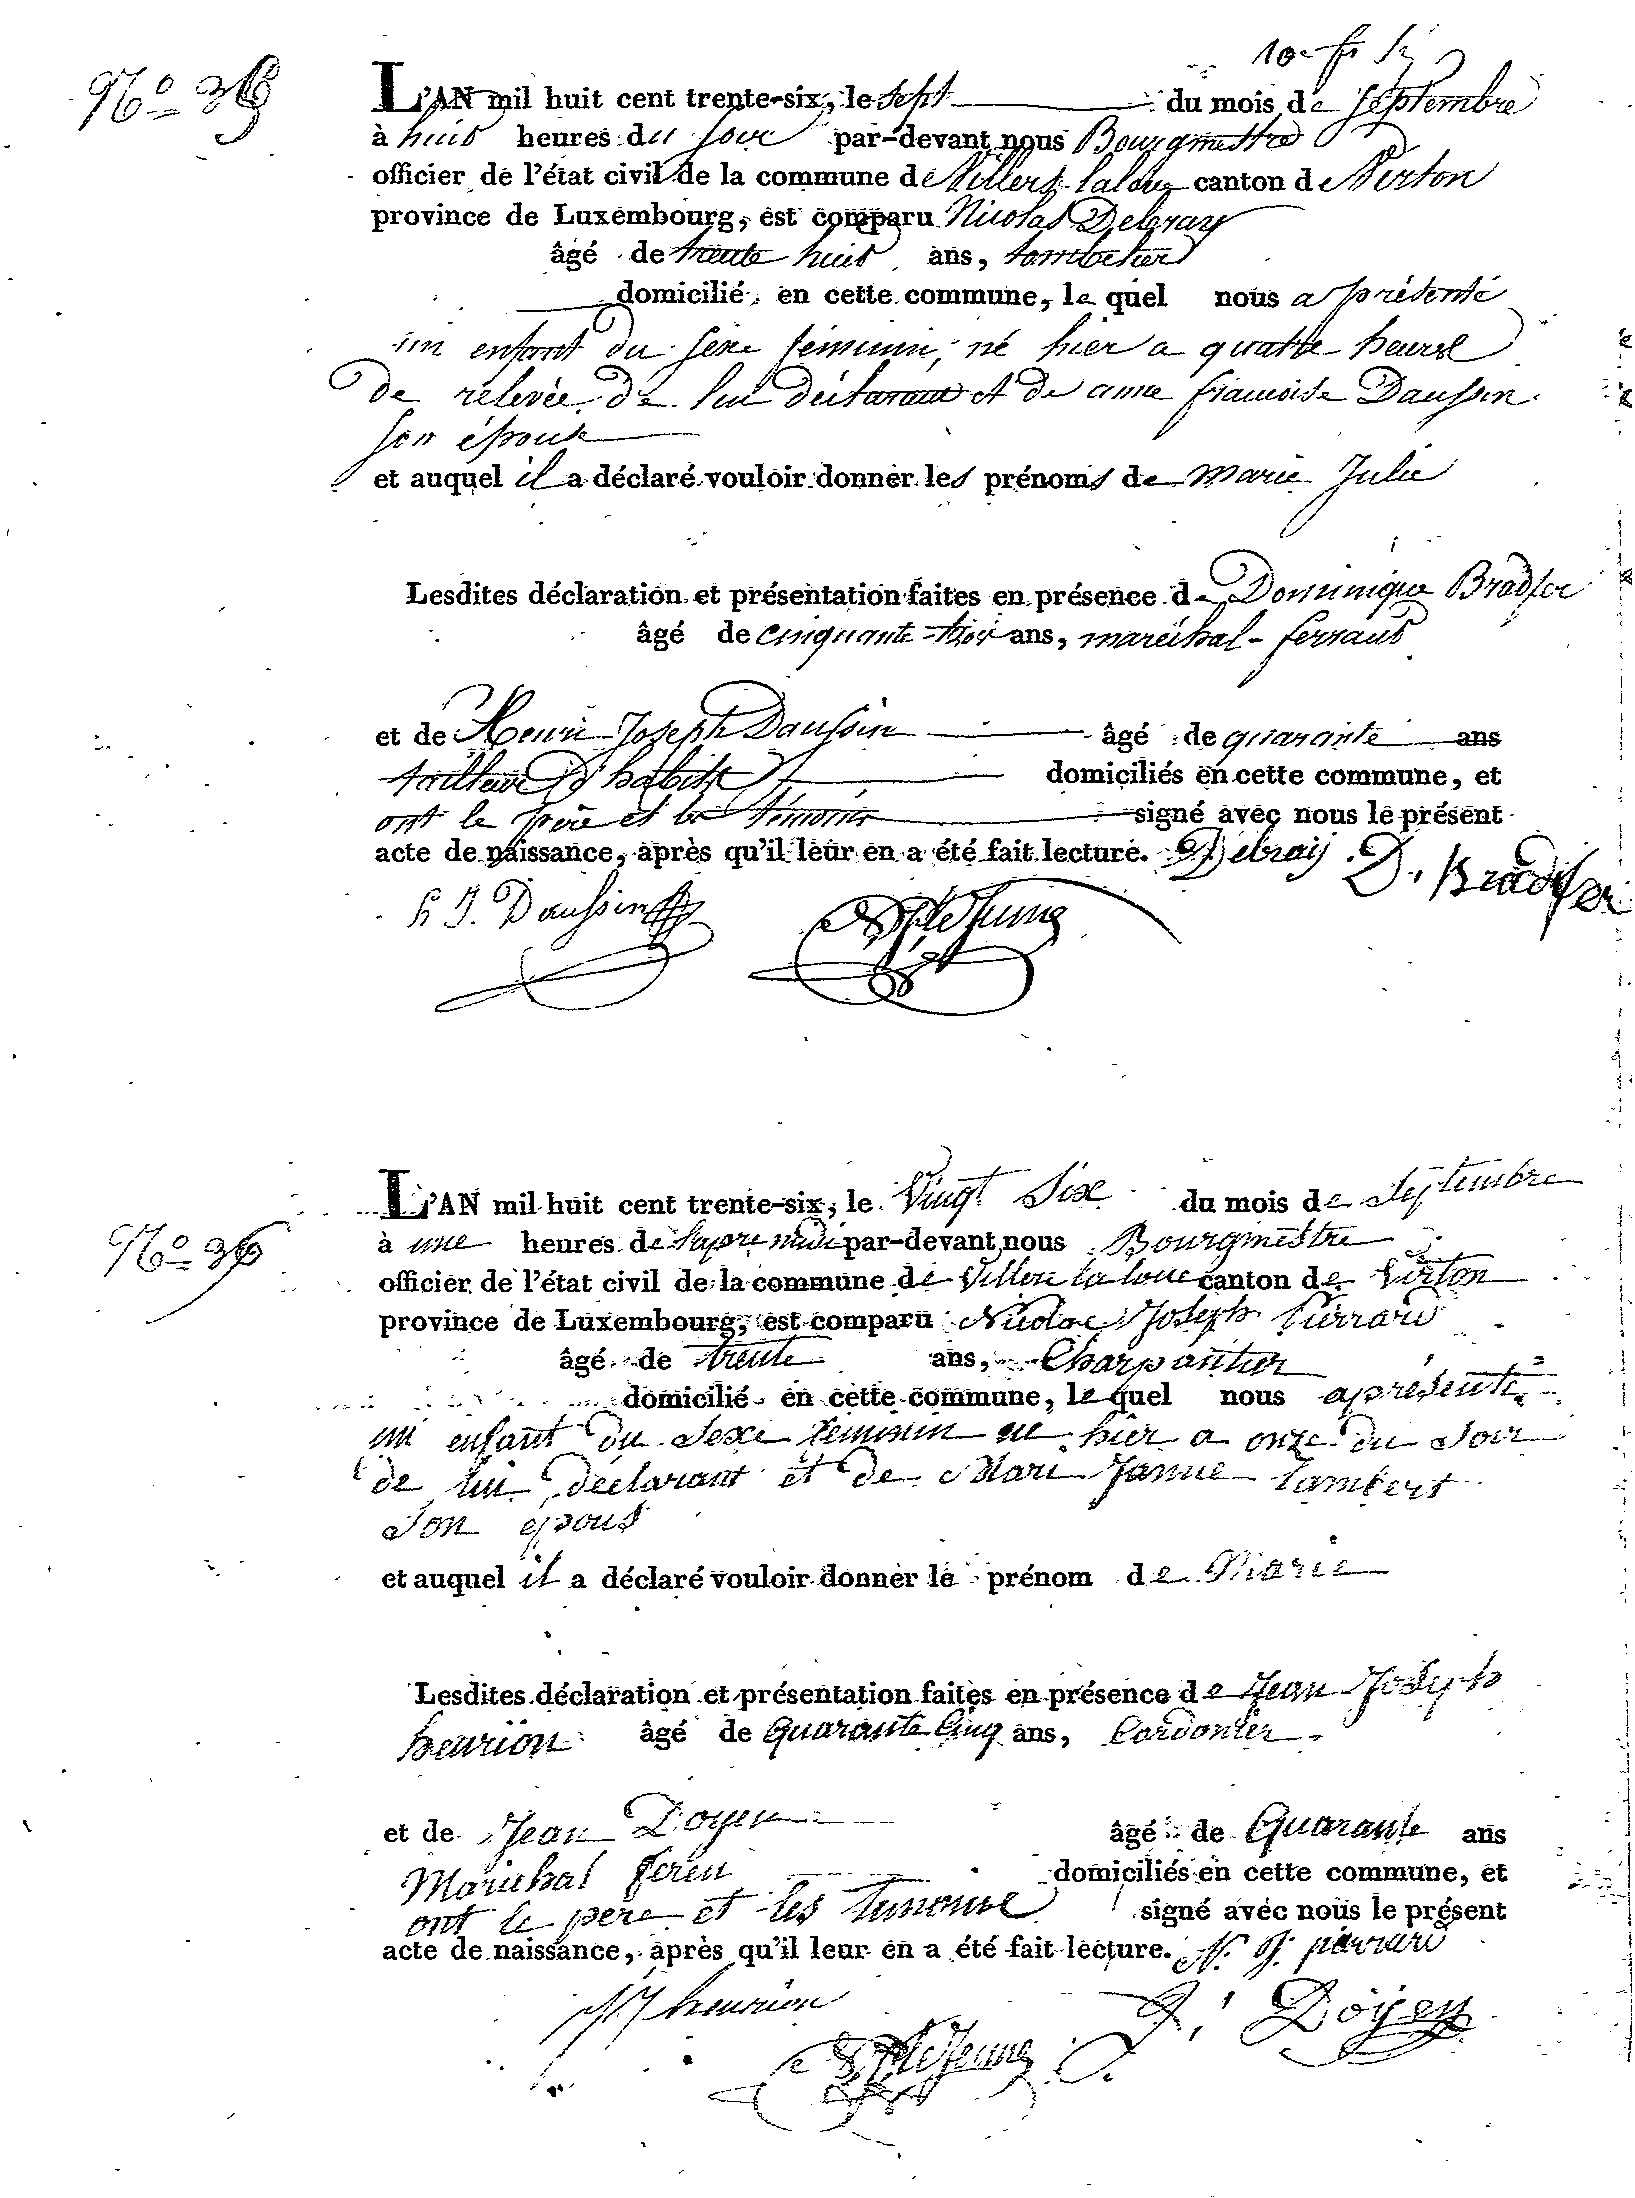 N° 35
L'AN mil huit cent trente-six, le sept du mois de septembre
à huit heures du soir par-devant nous Bourgmestre
officier de l'état civil de la commune de Villers-laloue canton de Virton
province de Luxembourg, est comparu Nicolas Debray
âgé de trente huit ans,
domicilié en cette commune, le quel nous a présenté
un enfant du sexe féminin, né hier a quatre heures
de relevée de lui déclarant et de anne francoise Daussin
son épouse
et auquel il a déclaré vouloir donner les prénoms de marie Julie
Lesdites déclaration et présentation faites en présence de Dominique Bradfer
âgé de cinquante-trois ans, maréchal-ferrant
et de Henri Joseph Daussin âgé de quarante ans
tailleur D'habits domiciliés en cette commune, et
ont le père et les témoins signé avec nous le présent
acte de naissance, après qu'il leur en a été fait lecture. Debray D. Bradfer
h J. Daussin LeJeune
N° 36
L'AN mil huit cent trente-six, le Vingt Six du mois de Septembre
à une heures de l'apre midi par-devant nous Bourgmestre
officier de l'état civil de la commune de Viller la loue canton de Virton
province de Luxembourg, est comparu Nicolas Joseph Pierrard
âgé de trente ans, Charpantier
domicilié en cette commune, le quel nous a présenté
un enfant du Sexe feminin né hier a onze du Soir
de lui déclarant et de Mari Janne Lambert
Son epous
et auquel il a déclaré vouloir donner le prénom de Marie
Lesdites déclaration et présentation faites en présence de Jean Joseph
henrion âgé de Quarante Cinq ans, Cordonier
et de Jean Doyen âgé de Quarante ans
Marichal feren domiciliés en cette commune, et
ont le père et les temoins signé avec nous le présent
acte de naissance, après qu'il leur en a été fait lecture. N. J. pierrard
J J henrion J. Doyen
LeJeune